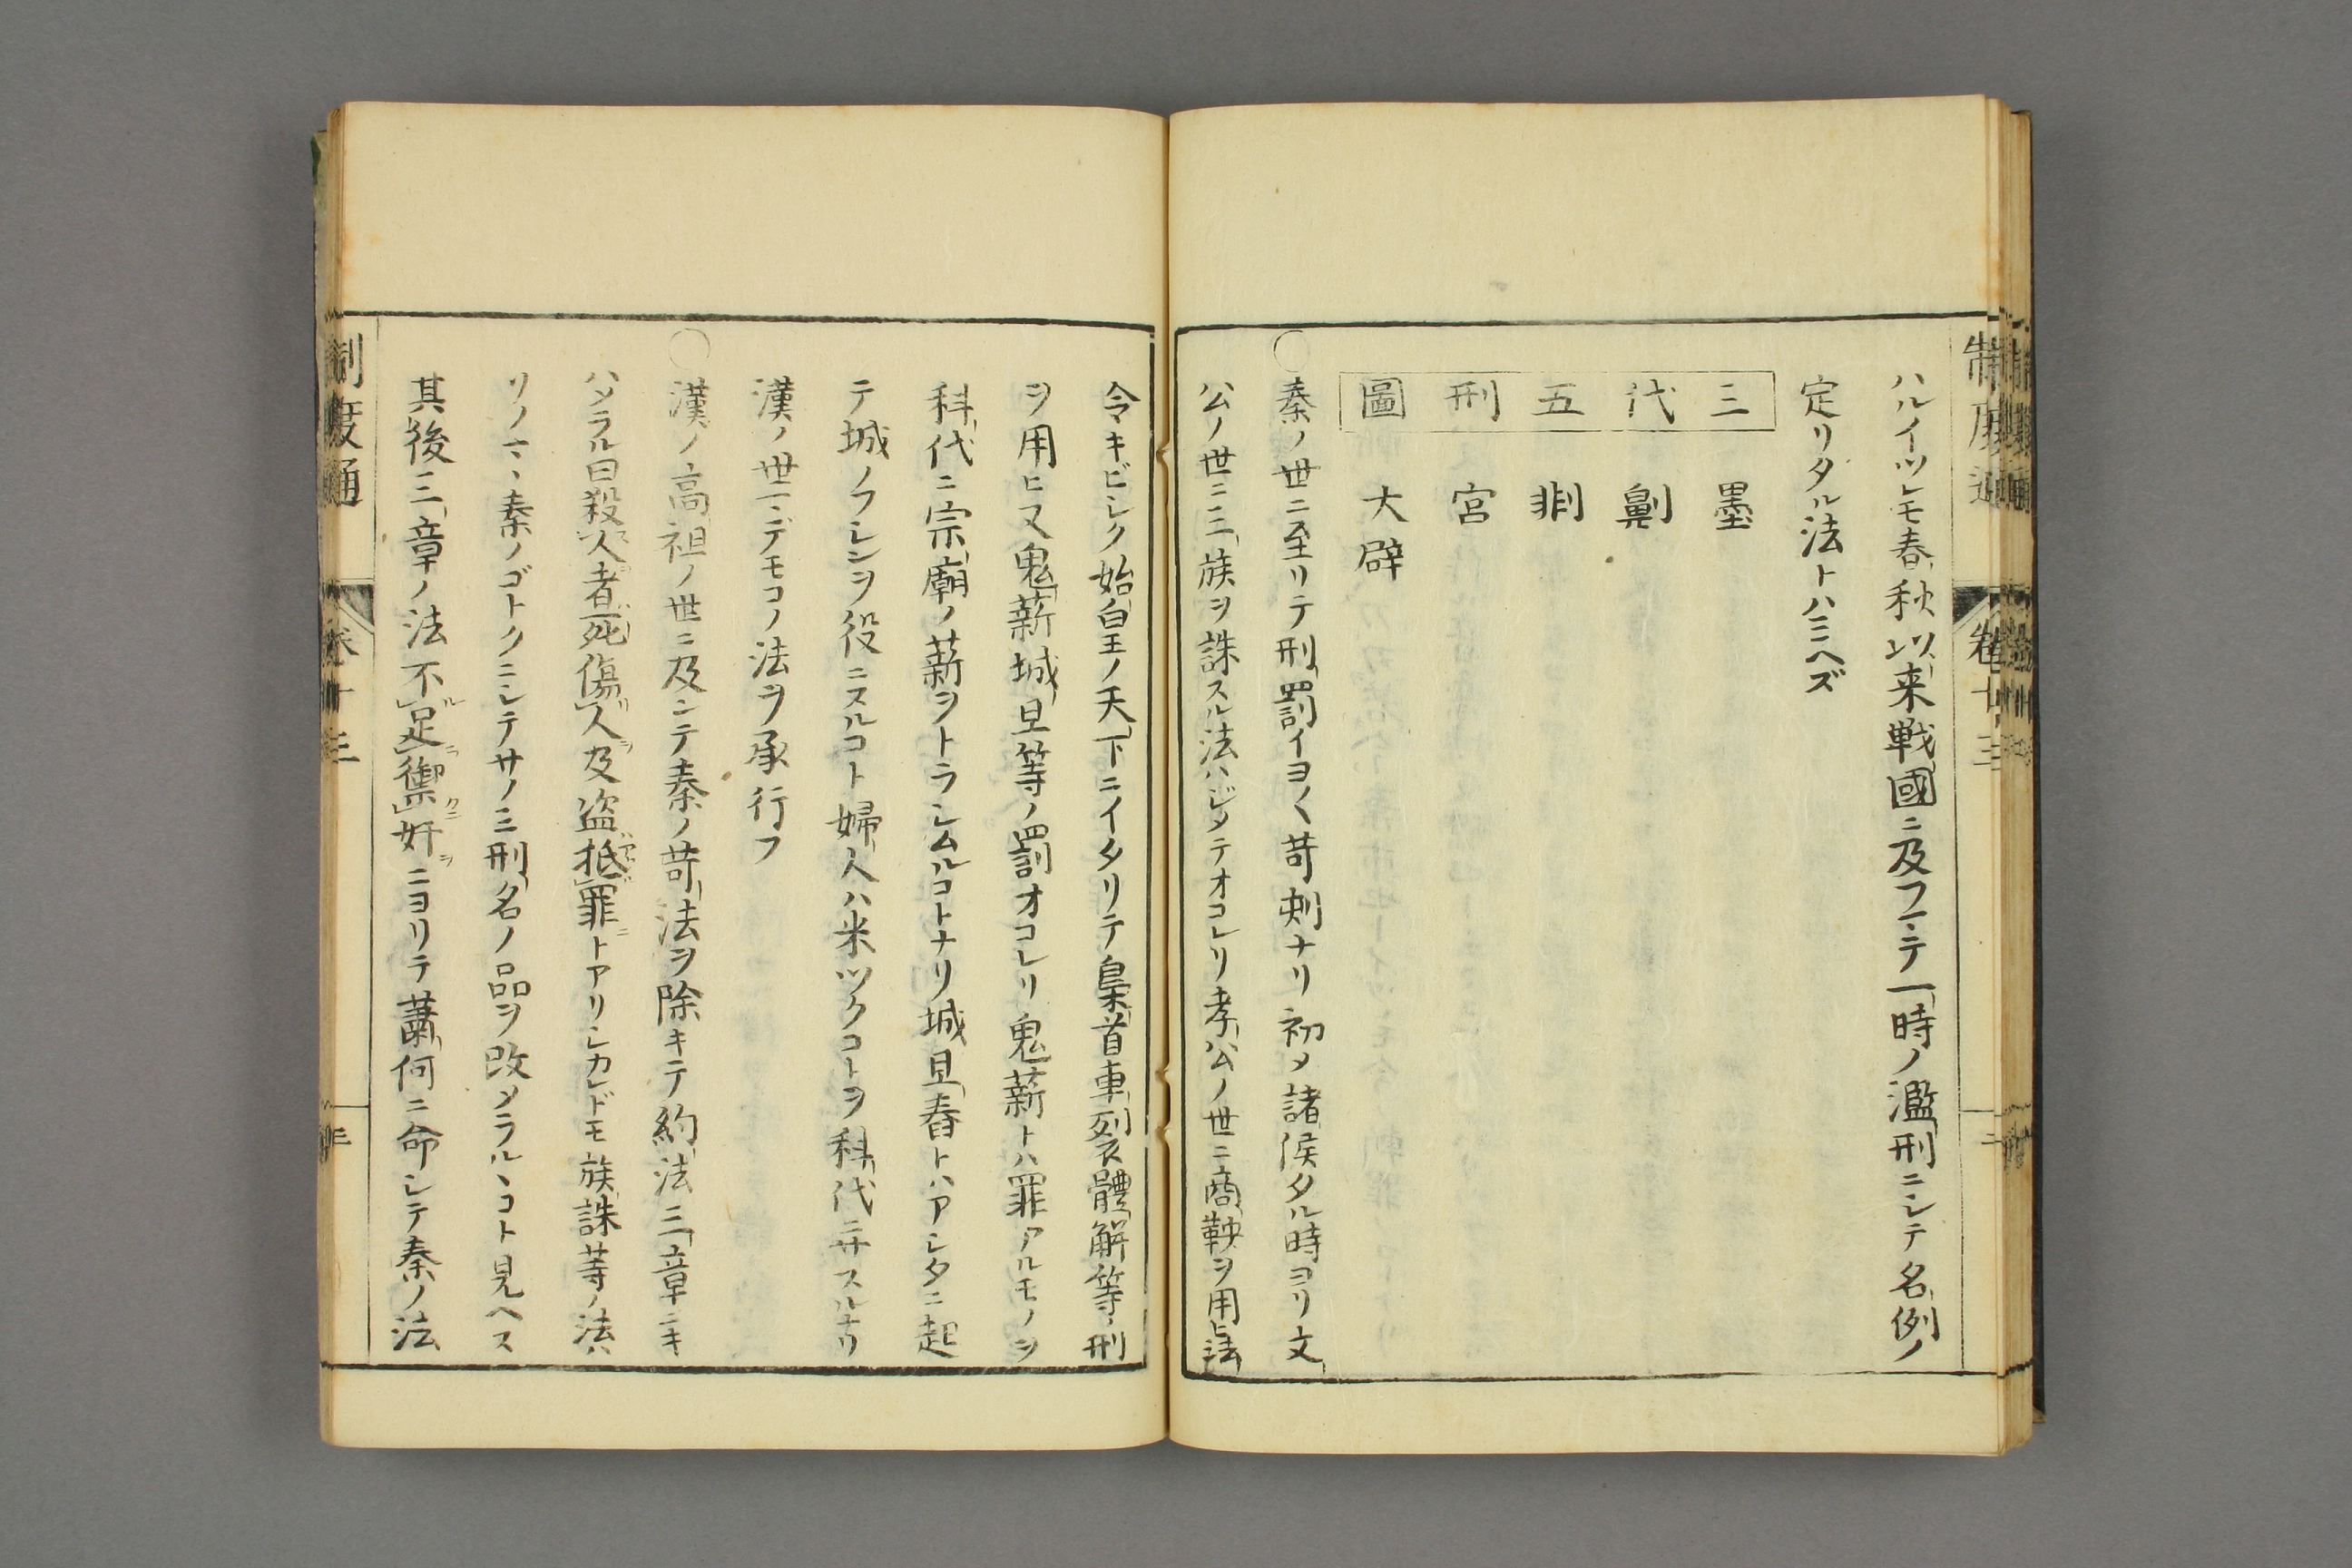 制度通
卷十三
二
ハルイツレモ春秋以来戦國ニ及フマテ一時ノ濫刑ニシテ名例ノ
定リタル法トハミヘズ
三代五刑圖
墨
劓
剕
宮
大辟
○秦ノ世ニ至リテ刑罰イヨ〱苛刻ナリ初メ諸侯タル時ヨリ文
公ノ世ニ三族ヲ誅スル法ハジメテオコレリ孝公ノ世ニ商鞅ヲ用ヒ法
令キビシク始皇ノ天下ニイタリテ梟首車裂體解等ノ刑
ヲ用ヒ又鬼薪城旦等ノ罰オコレリ鬼薪トハ罪アルモノヲ
科代ニ宗廟ノ薪ヲトラシムルコトナリ城旦舂トハアシタニ起
テ城ノフシンヲ役ニスルコト婦人ハ米ツクコトヲ科代ニサスルナリ
漢ノ世マデモコノ法ヲ承行フ
○漢ノ高祖ノ世ニ及ンテ秦ノ苛法ヲ除キテ約法三章ニキ
ハメラル曰殺人者死傷人及盗抵罪トアリシカレドモ族誅等ノ法ハ
リノマヽ秦ノゴトクニシテサノミ刑名ノ品ヲ改メラルヽコト見ヘス
其後三章ノ法不足禦奸ニヨリテ蕭何ニ命シテ秦ノ法
制度通
卷十三
三